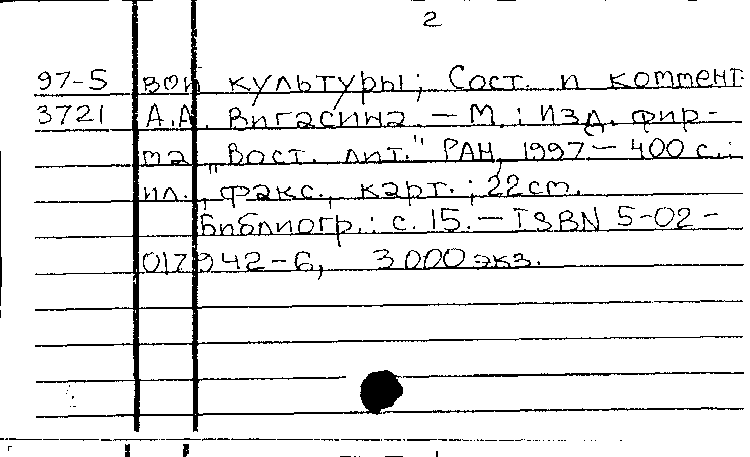 2
97-5 вой культуры; Сост. и коммент.
3721 А.А. Вигасина. — М.: Изд. фир-
ма „Вост. лит." РАН, 1997. — 400 с.:
ил., факс., карт.; 22 cm.
Библиогр.: с. 15. — ISBN 5-02-
017942-6, 3000 экз.